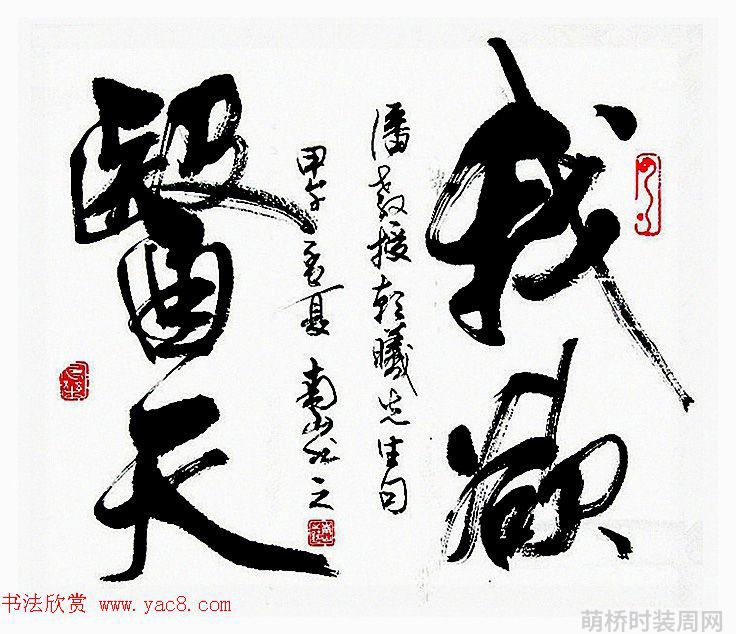 我欲
潘教授朝曦先生句
甲午孟夏 南山书之
醫天
书法欣赏 www.yac8.com
萌桥时装周网